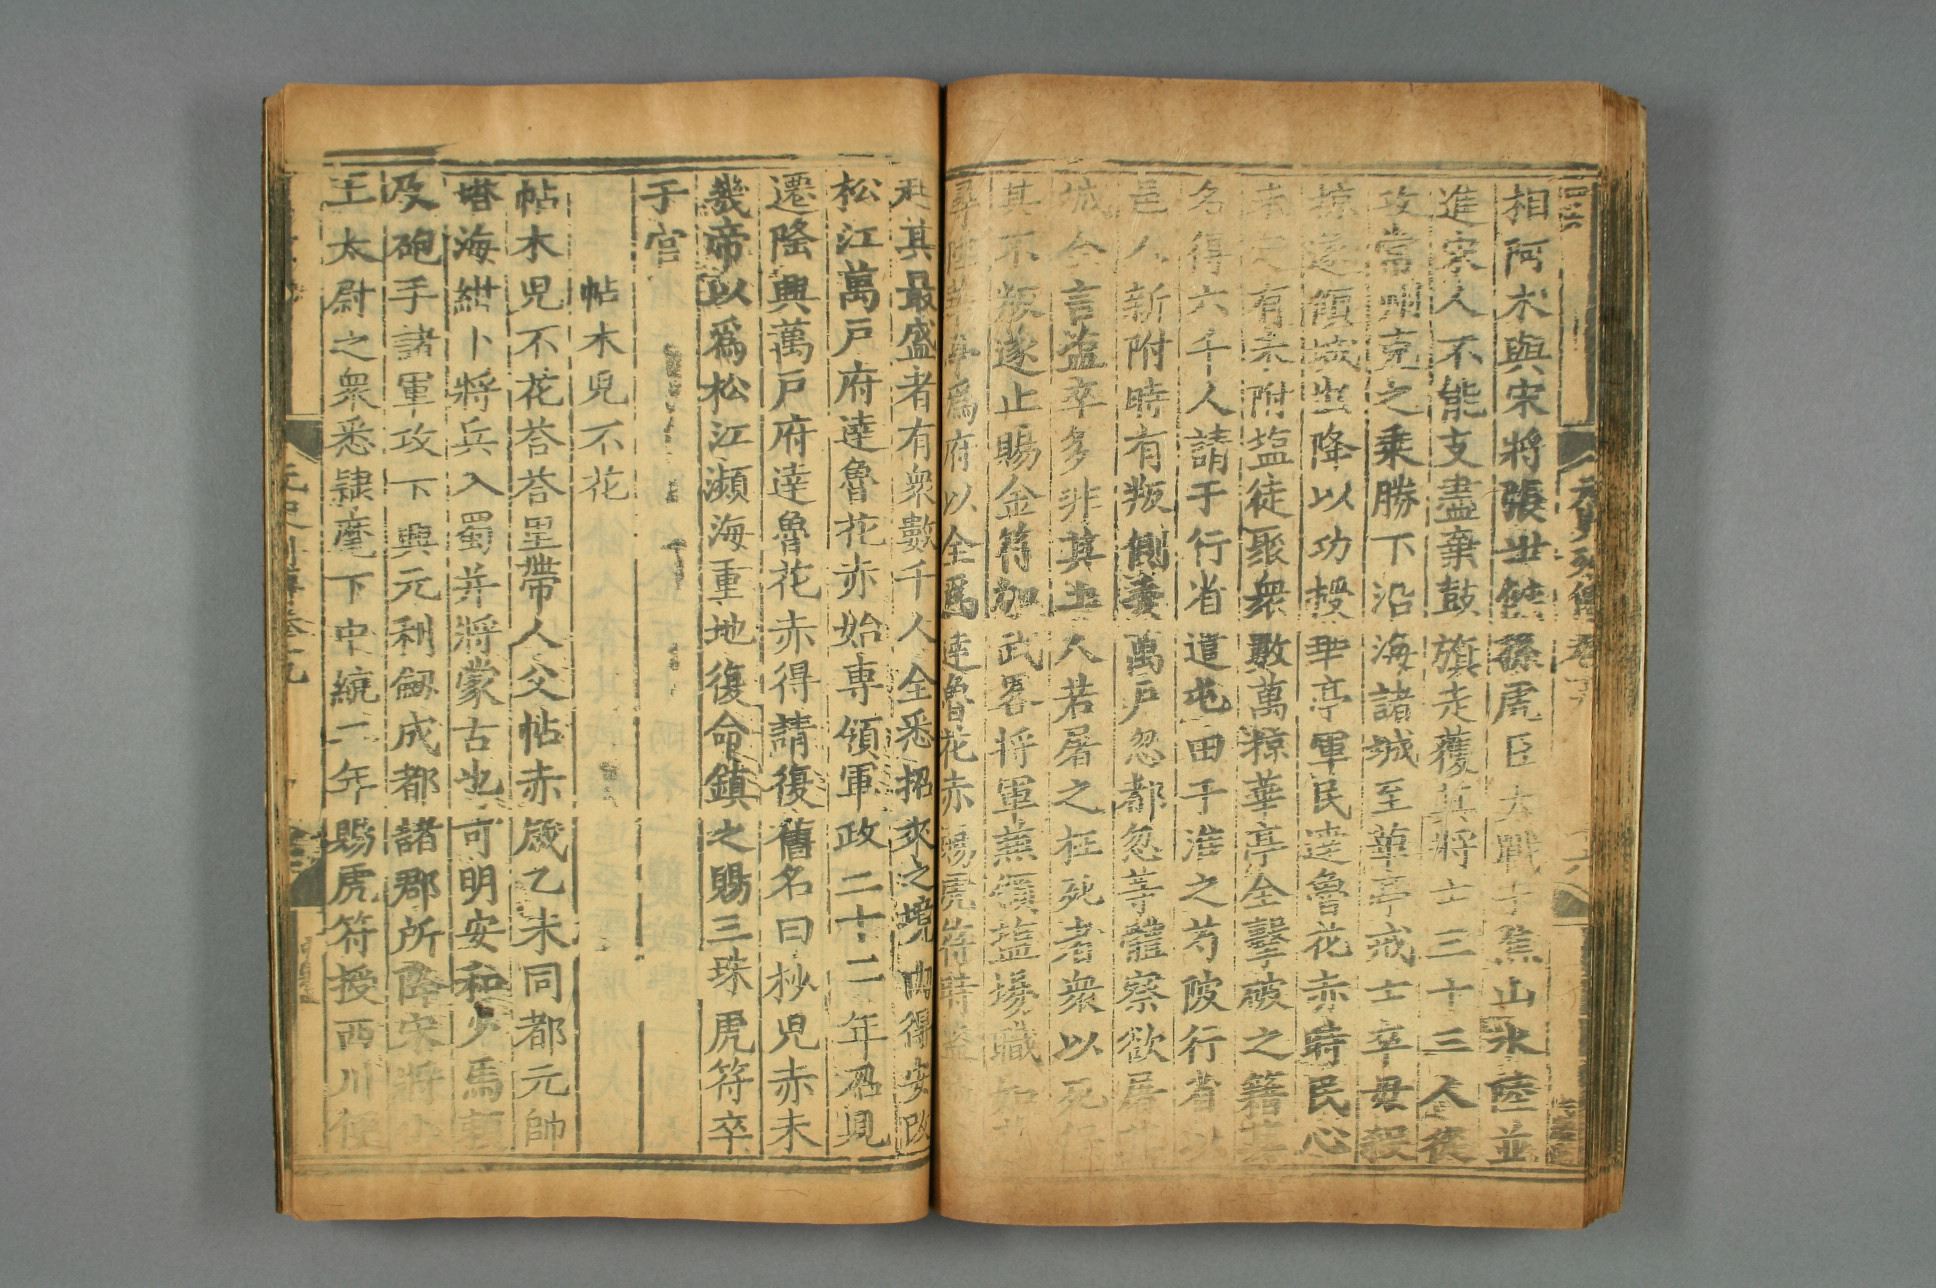 相阿朮與宋將張世傑孫虎臣大戰于焦山水陸並
進宋人不能支盡棄鼓旗走獲其將士三十三人復
攻常州克之乘勝下沿海諸城至華亭戒士卒毋殺
掠遂傾城出降以功授華亭軍民達魯花赤時民心
未定有未附塩徒聚衆數萬掠華亭全擊破之籍其
名得六千人請于行省遣屯田于淮之芍陂行省以
邑人新附時有叛側委萬戶忽都忽等體察欲屠其
城全言盗卒多非其土人若屠之枉死者衆以死保
其不叛遂止賜金符加武畧將軍兼領塩場職如故
尋陞華亭爲府以全爲達魯花赤賜虎符時盗
起其最盛者有衆數千人全悉招來之境內得安改
松江萬戶府達魯花赤始専領軍政二十二年召見
遷隆興萬戶府達魯花赤得請復舊名曰抄兒赤未
幾帝以爲松江瀕海重地復命鎮之賜三珠虎符卒
于官
帖木兒不花
帖木兒不花荅荅里帶人父帖赤歲乙未同都元帥
塔海紺卜將兵入蜀并將蒙古也可明安和少馬賴
及砲手諸軍攻下興元利劒成都諸郡所降宋將小
王太尉之衆悉隷麾下中統二年賜虎符授西川便
元史列傳卷十九